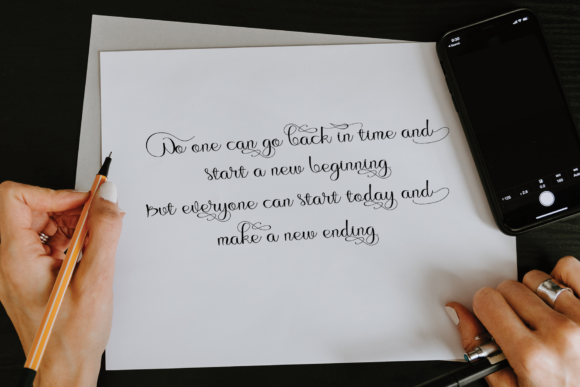 No one can go back in time and
start a new beginning
But everyone can start today and
make a new ending